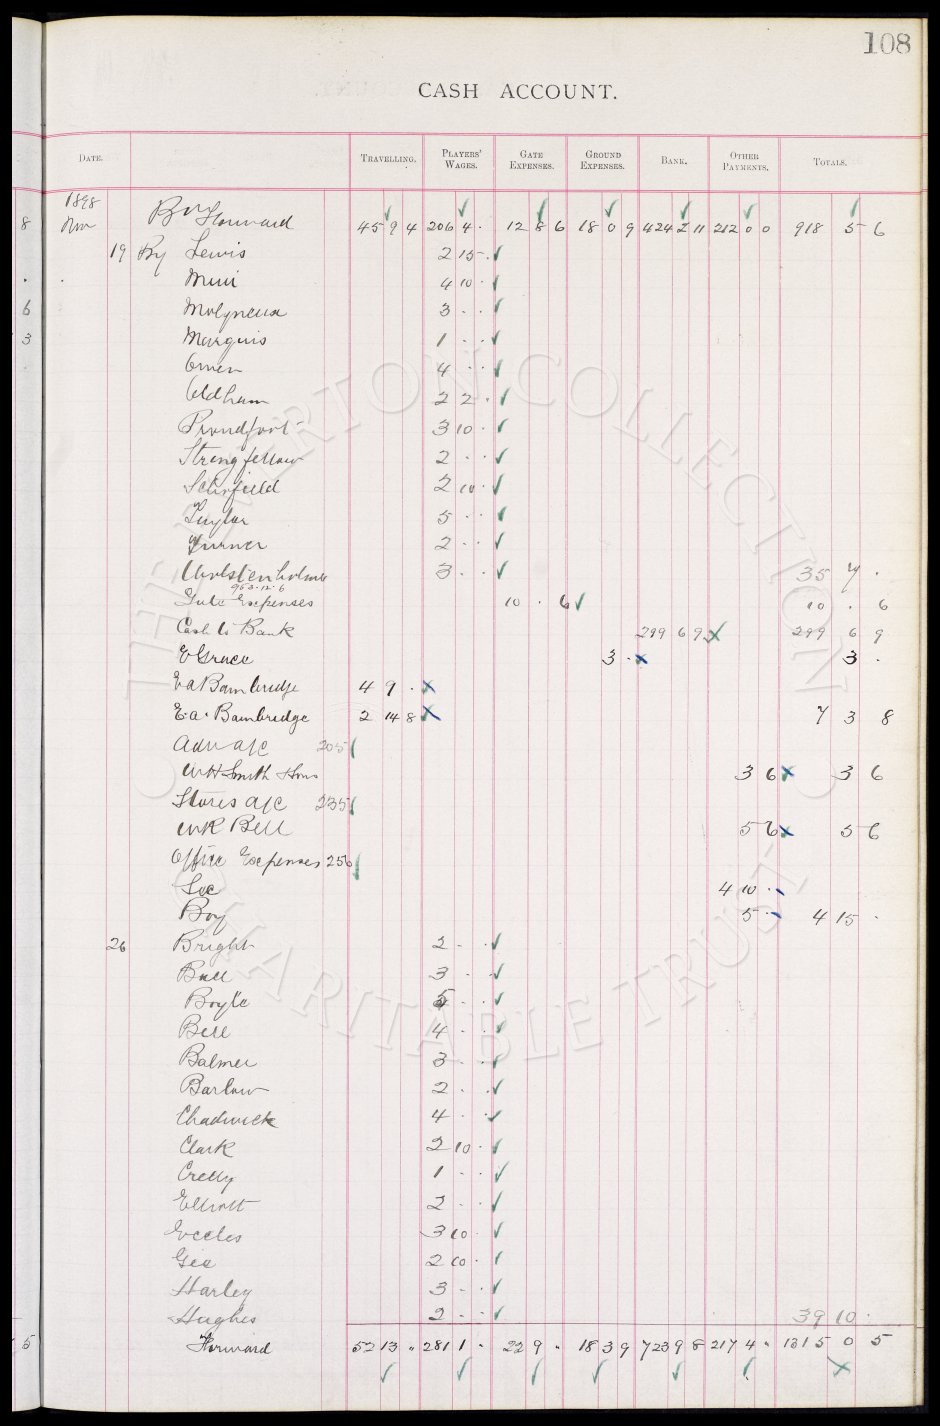 108
CASH ACCOUNT.
DATE. TRAVELLING. PLAYERS' WAGES. GATE EXPENSES. GROUND EXPENSES. BANK. OTHER PAYMENTS. TOTALS.
1898
8 Nov Bt Forward 45 9 4 206 4 . 12 8 6 18 0 9 424 2 11 212 0 0 918 5 6
19 By Lewis 2 15 .
Muir 4 10 .
6 Molyneux 3 . .
3 Marquis 1 . .
Owen 4 . .
Oldham 2 2 .
Proudfoot 3 10 .
Stringfellow 2 . .
Schofield 2 10 .
Taylor 5 . .
Turner 2 . .
Wolstenholme 3 . . 35 7 .
953.12.6
Gate Expenses 10 . 6 10 . 6
Cash to Bank 299 6 9 299 6 9
E Grace 3 . 3 .
E A Bainbridge 4 9 .
E. A. Bainbridge 2 14 8 7 3 8
Adv a/c 205
W H Smith & Sons 3 6 3 6
Stores a/c 235
W R Bell 5 6 5 6
Office Expenses 256
Sec 4 10 .
Boy 5 . 4 15 .
26 Bright 2 . .
Bull 3 . .
Boyle 5 . .
Bell 4 . .
Balmer 3 . .
Barlow 2 . .
Chadwick 4 . .
Clark 2 10 .
Crelly 1 . .
Elliott 2 . .
Eccles 3 10 .
Gee 2 10 .
Harley 3 . .
Hughes 2 . . 39 10 .
5 Forward 52 13 . 281 1 . 22 9 . 18 3 9 723 9 8 217 4 . 1315 0 5
THE EVERTON COLLECTION
CHARITABLE TRUST